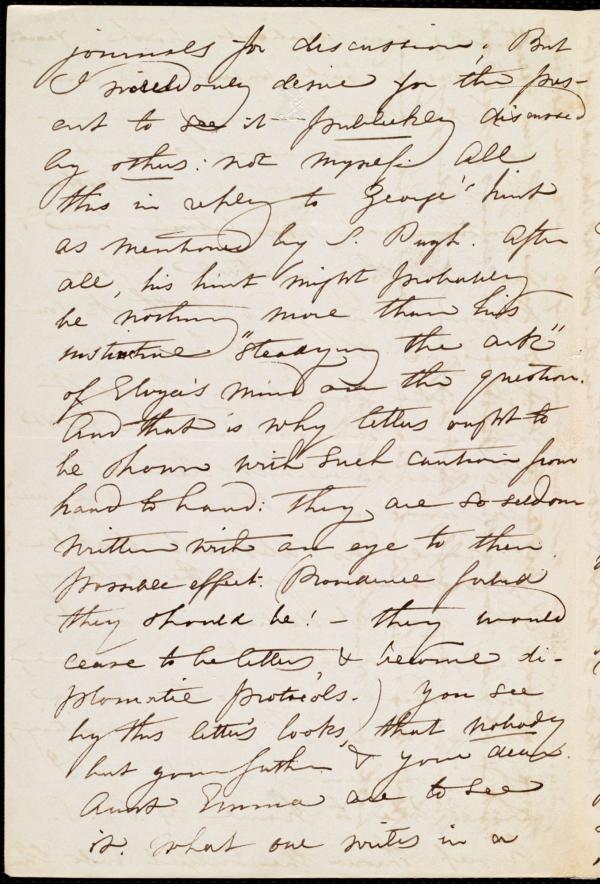 journals for discussion. But
I need only desire for the pres-
ent to see it publickly discussed
by others: not myself. All
this in reply to George's hint
as mentioned by S. Pugh. After
all, his hint might probably
be nothing more than his
instinctive "steadying the ark"
of Eliza's mind on the question.
And that is why letters ought to
be shown with such caution from
hand to hand: they are so seldom
written with an eye to their
possible effect. (Providence forbid
they should be! – they would
cease to be letters & become di-
plomatic protocols.) You see
by this letter's looks, that nobody
but your father & your dear
Aunt Emma are to see
it. What one writes in a